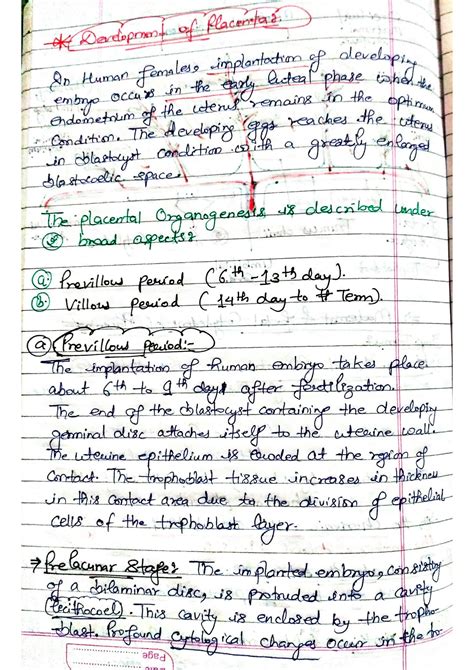 * Development of Placenta:
In Human females, implantation of developing
embryo occurs in the early luteal phase when the
endometrium of the uterus remains in the optimum
Condition. The developing eggs reaches the uterus
in blastocyst condition with a greatly enlarged
blastocoelic space.
The placental Organogenesis is described under
② broad aspects:
ⓐ Previllous period (6th - 13th day).
ⓑ Villous period (14th day to Term).
ⓐ Previllous Period:-
The implantation of human embryo takes place
about 6th to 9th day after fertilization.
The end of the blastocyst containing the developing
germinal disc attaches itself to the uterine wall.
The uterine epithelium is eroded at the region of
Contact. The trophoblast tissue increases in thickness
in this contact area due to the division of epithelial
cells of the trophoblast layer.
→ Prelacunar Stage: The implanted embryo, consisting
of a bilaminar disc, is protruded into a cavity
(lecithocoel). This cavity is enclosed by the tropho-
blast. Profound Cytological changes occur in the to
Page